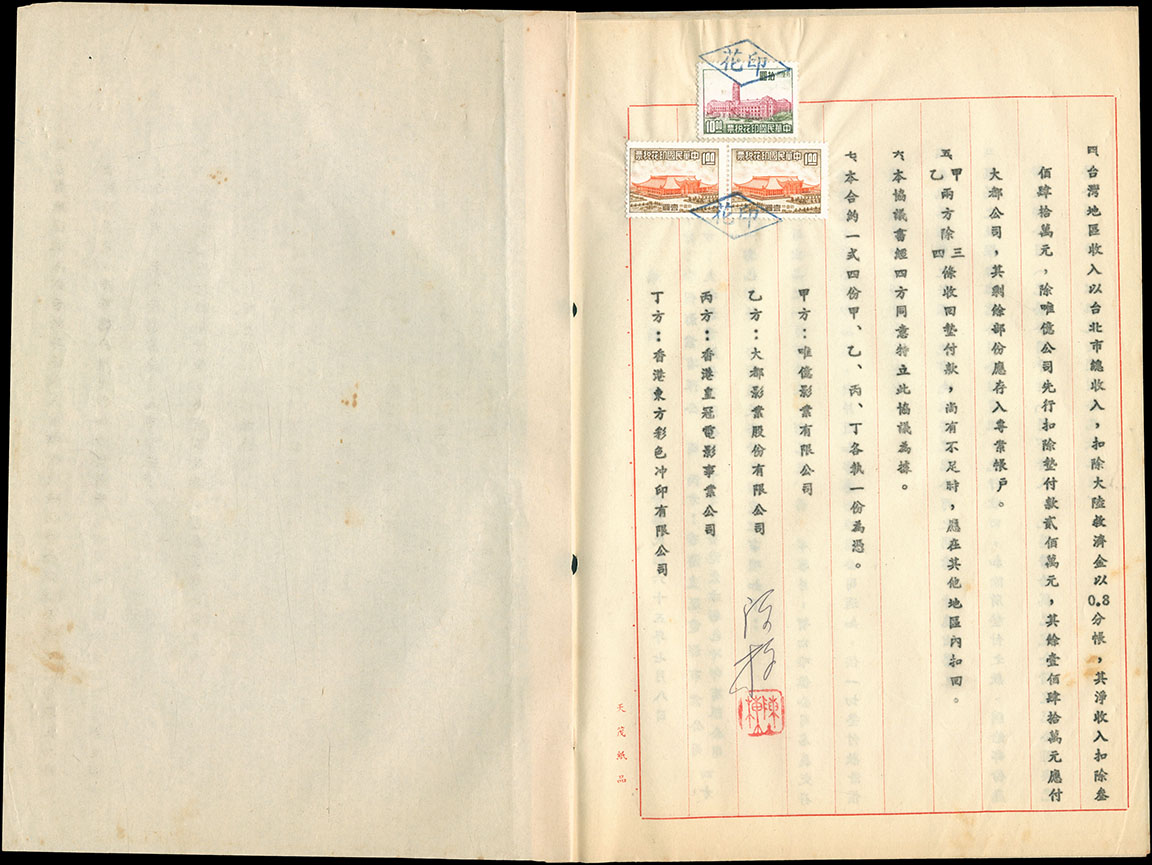 四台灣地區收入以台北市總收入，扣除大陸救濟金以0.8分帳，其淨收入扣除叁
佰肆拾萬元，除唯億公司先行扣除墊付款貳佰萬元，其餘壹佰肆拾萬元應付
大都公司，其剩餘部份應存入專業帳戶。
五甲乙兩方除三四條收回墊付款，尚有不足時，應在其他地區內扣回。
六本協議書經四方同意特立此協議為據。
七本合約一式四份甲、乙、丙、丁各執一份為憑。
甲方：唯億影業有限公司
乙方：大都影業股份有限公司
丙方：香港皇冠電影事業公司
丁方：香港東方彩色冲印有限公司
花印
拾圓
10
票稅花印國民華中
票稅花印國民華中
1
圓壹
票稅花印國民華中
1
圓壹
花印
天茂紙品